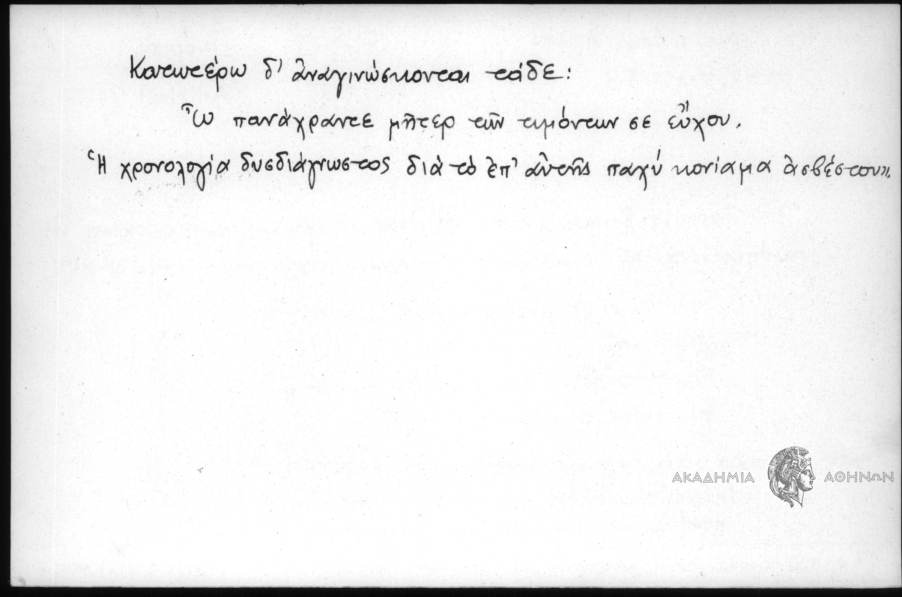 Κατωτέρω δ' ἀναγινώσκονται τάδε:
Ὦ πανάχραντε μῆτερ τῶν τιμόντων σε εὔχου.
Ἡ χρονολογία δυσδιάγνωστος διὰ τὸ ἐπ' αὐτῆς παχὺ κονίαμα ἀσβέστου».
ΑΚΑΔΗΜΙΑ ΑΘΗΝΩΝ